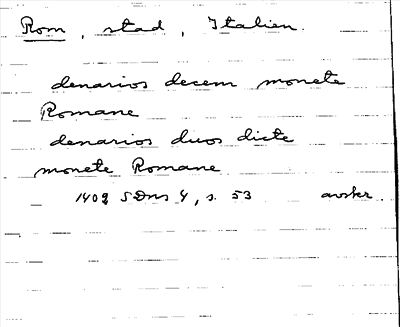 Rom, stad, Italien.
denarios decem monete
Romane
denarios duos dicte
monete Romane
1402 SDns 4, s. 53 avskr.